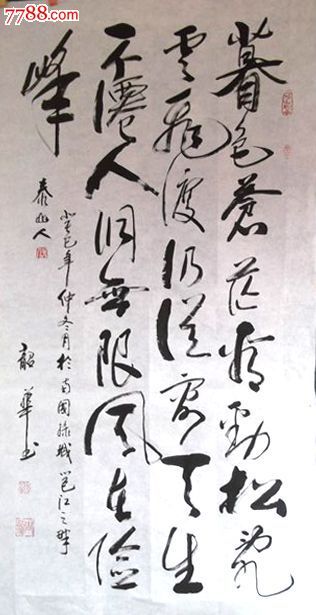 7788.com
暮色蒼茫看勁松亂
雲飛渡仍從容天生
一个僊人洞無限風光在險
峰
癸巳年仲冬月於南國綠城邕江之畔
韶華书